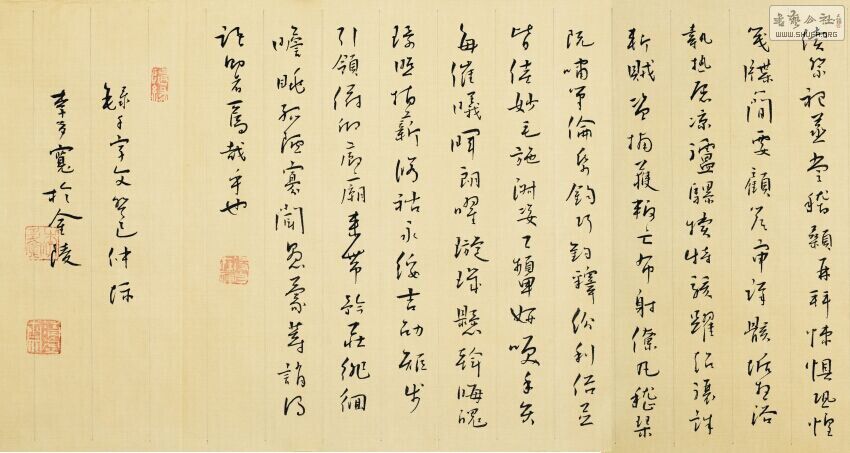 續祭祀蒸嘗稽顙再拜悚懼恐惶
箋牒簡要顧答審詳骸垢想浴
執熱願涼驢騾犢特駭躍超驤誅
斬賊盜捕獲叛亡布射僚丸嵇琴
阮嘯筆倫紙鈞巧釣釋紛利俗並
皆佳妙毛施淑姿工顰妍笑年矢
每催曦暉朗曜璇璣懸斡晦魄
環照指薪修祜永綏吉劭矩步
引領俯仰廊廟束帶矜莊徘徊
瞻眺孤陋寡聞愚蒙等誚謂
語助者焉哉乎也
錄千字文癸巳仲秋
李寬於金陵
书艺公社
WWW.SHUFA.ORG